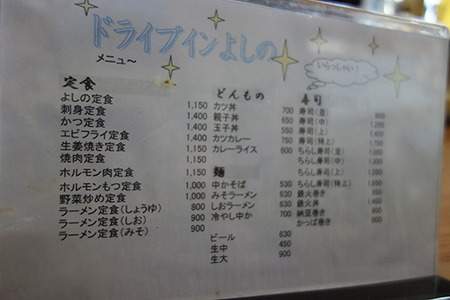 ドライブインよしの
メニュ～
いらっしゃい！
定食
よしの定食 1,150
刺身定食 1,400
かつ定食 1,400
エビフライ定食 1,400
生姜焼き定食 1,150
焼肉定食
ホルモン肉定食 1,150
ホルモンもつ定食 1,000
野菜炒め定食 800
ラーメン定食(しょうゆ) 900
ラーメン定食(しお) 900
ラーメン定食(みそ)
どんもの
カツ丼 700
親子丼 600
玉子丼 550
カツカレー 750
カレーライス 600
麺
中かそば 530
みそラーメン 630
しおラーメン
冷やし中か 700
ビール 530
生中 450
生大 900
寿司
寿司(並) 900
寿司(中)
寿司(上)
寿司(特上)
ちらし寿司(並)
ちらし寿司(中)
ちらし寿司(上)
ちらし寿司(特上)
鉄火巻き
鉄火丼
納豆巻き
かっぱ巻き